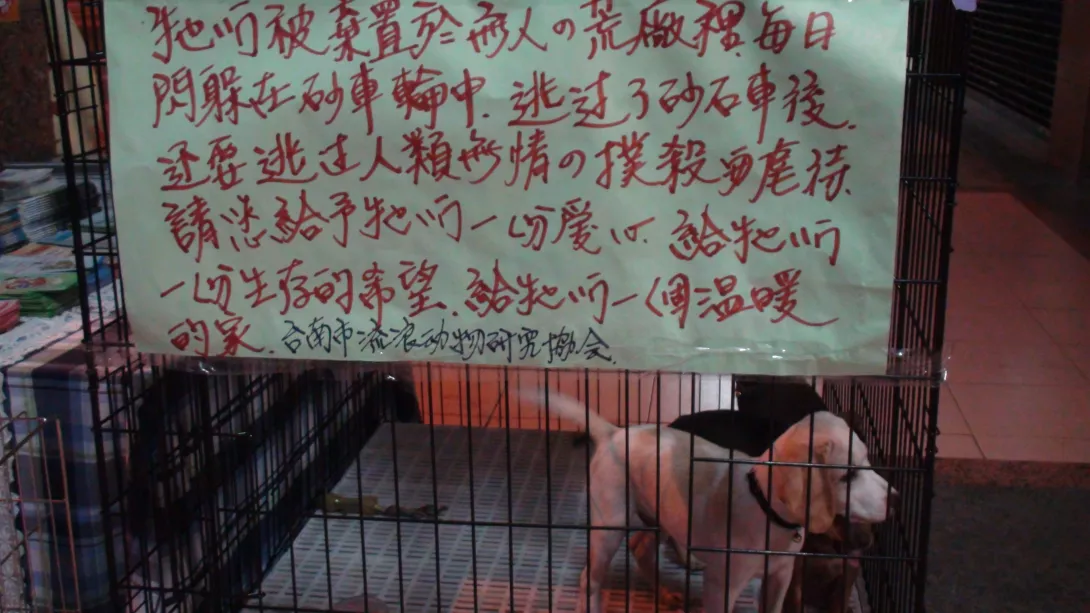 牠们被棄置於無人の荒廠裡.每日
閃躲在砂車輪中.逃过了砂石車後.
还要逃过人類無情の撲殺与虐待.
請您給予牠们一份爱心.給牠们
一份生存的希望.給牠们一個温暖
的家.台南市流浪动物研究協会.